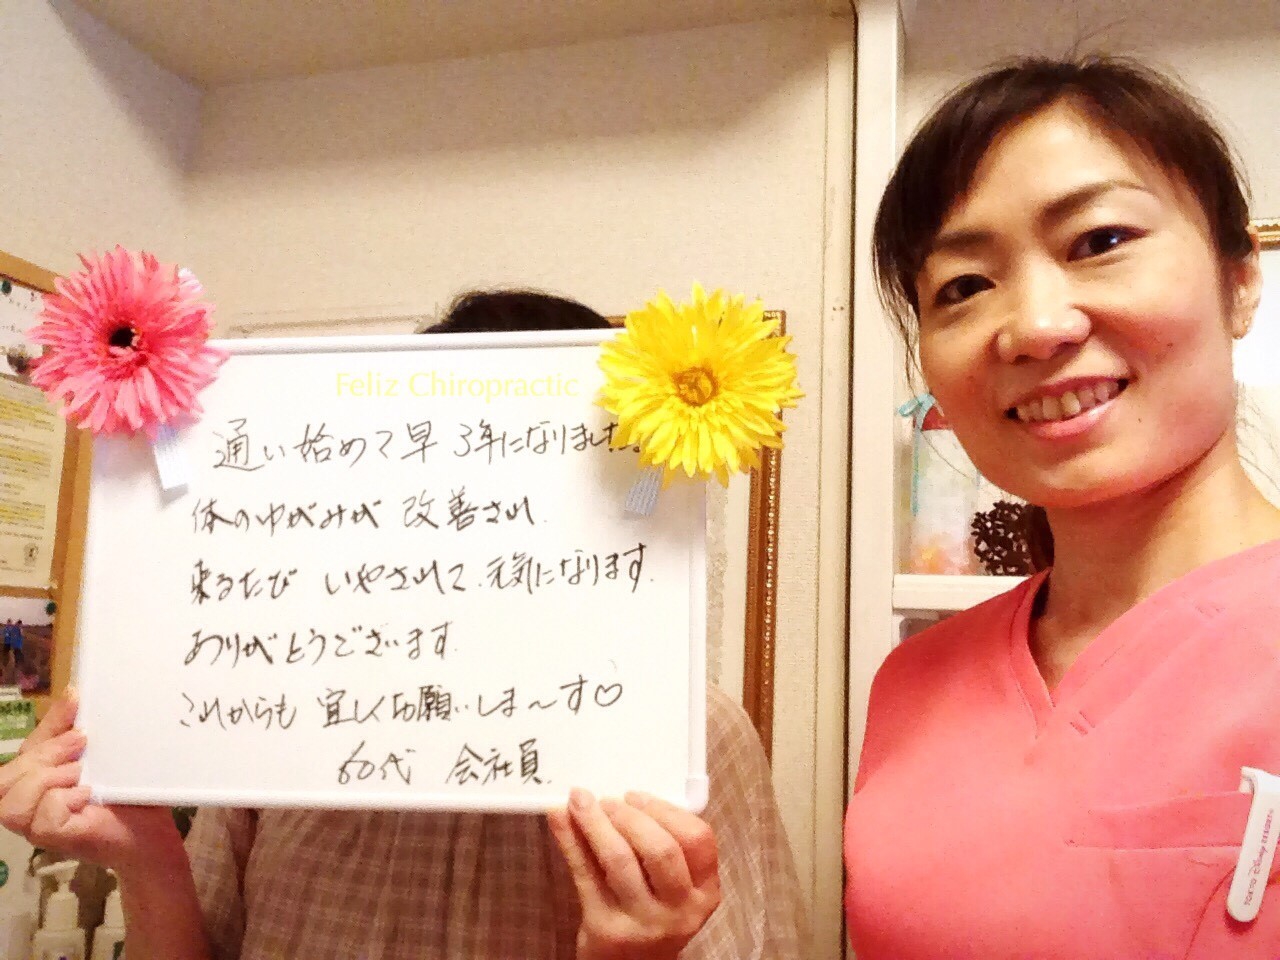 Feliz Chiropractic
通い始めて早3年になりました。
体のゆがみが改善され
来るたびいやされて、元気になります。
ありがとうございます。
これからも宜しくお願いしま〜す♡
60代 会社員
TOKYO Disney RESORT